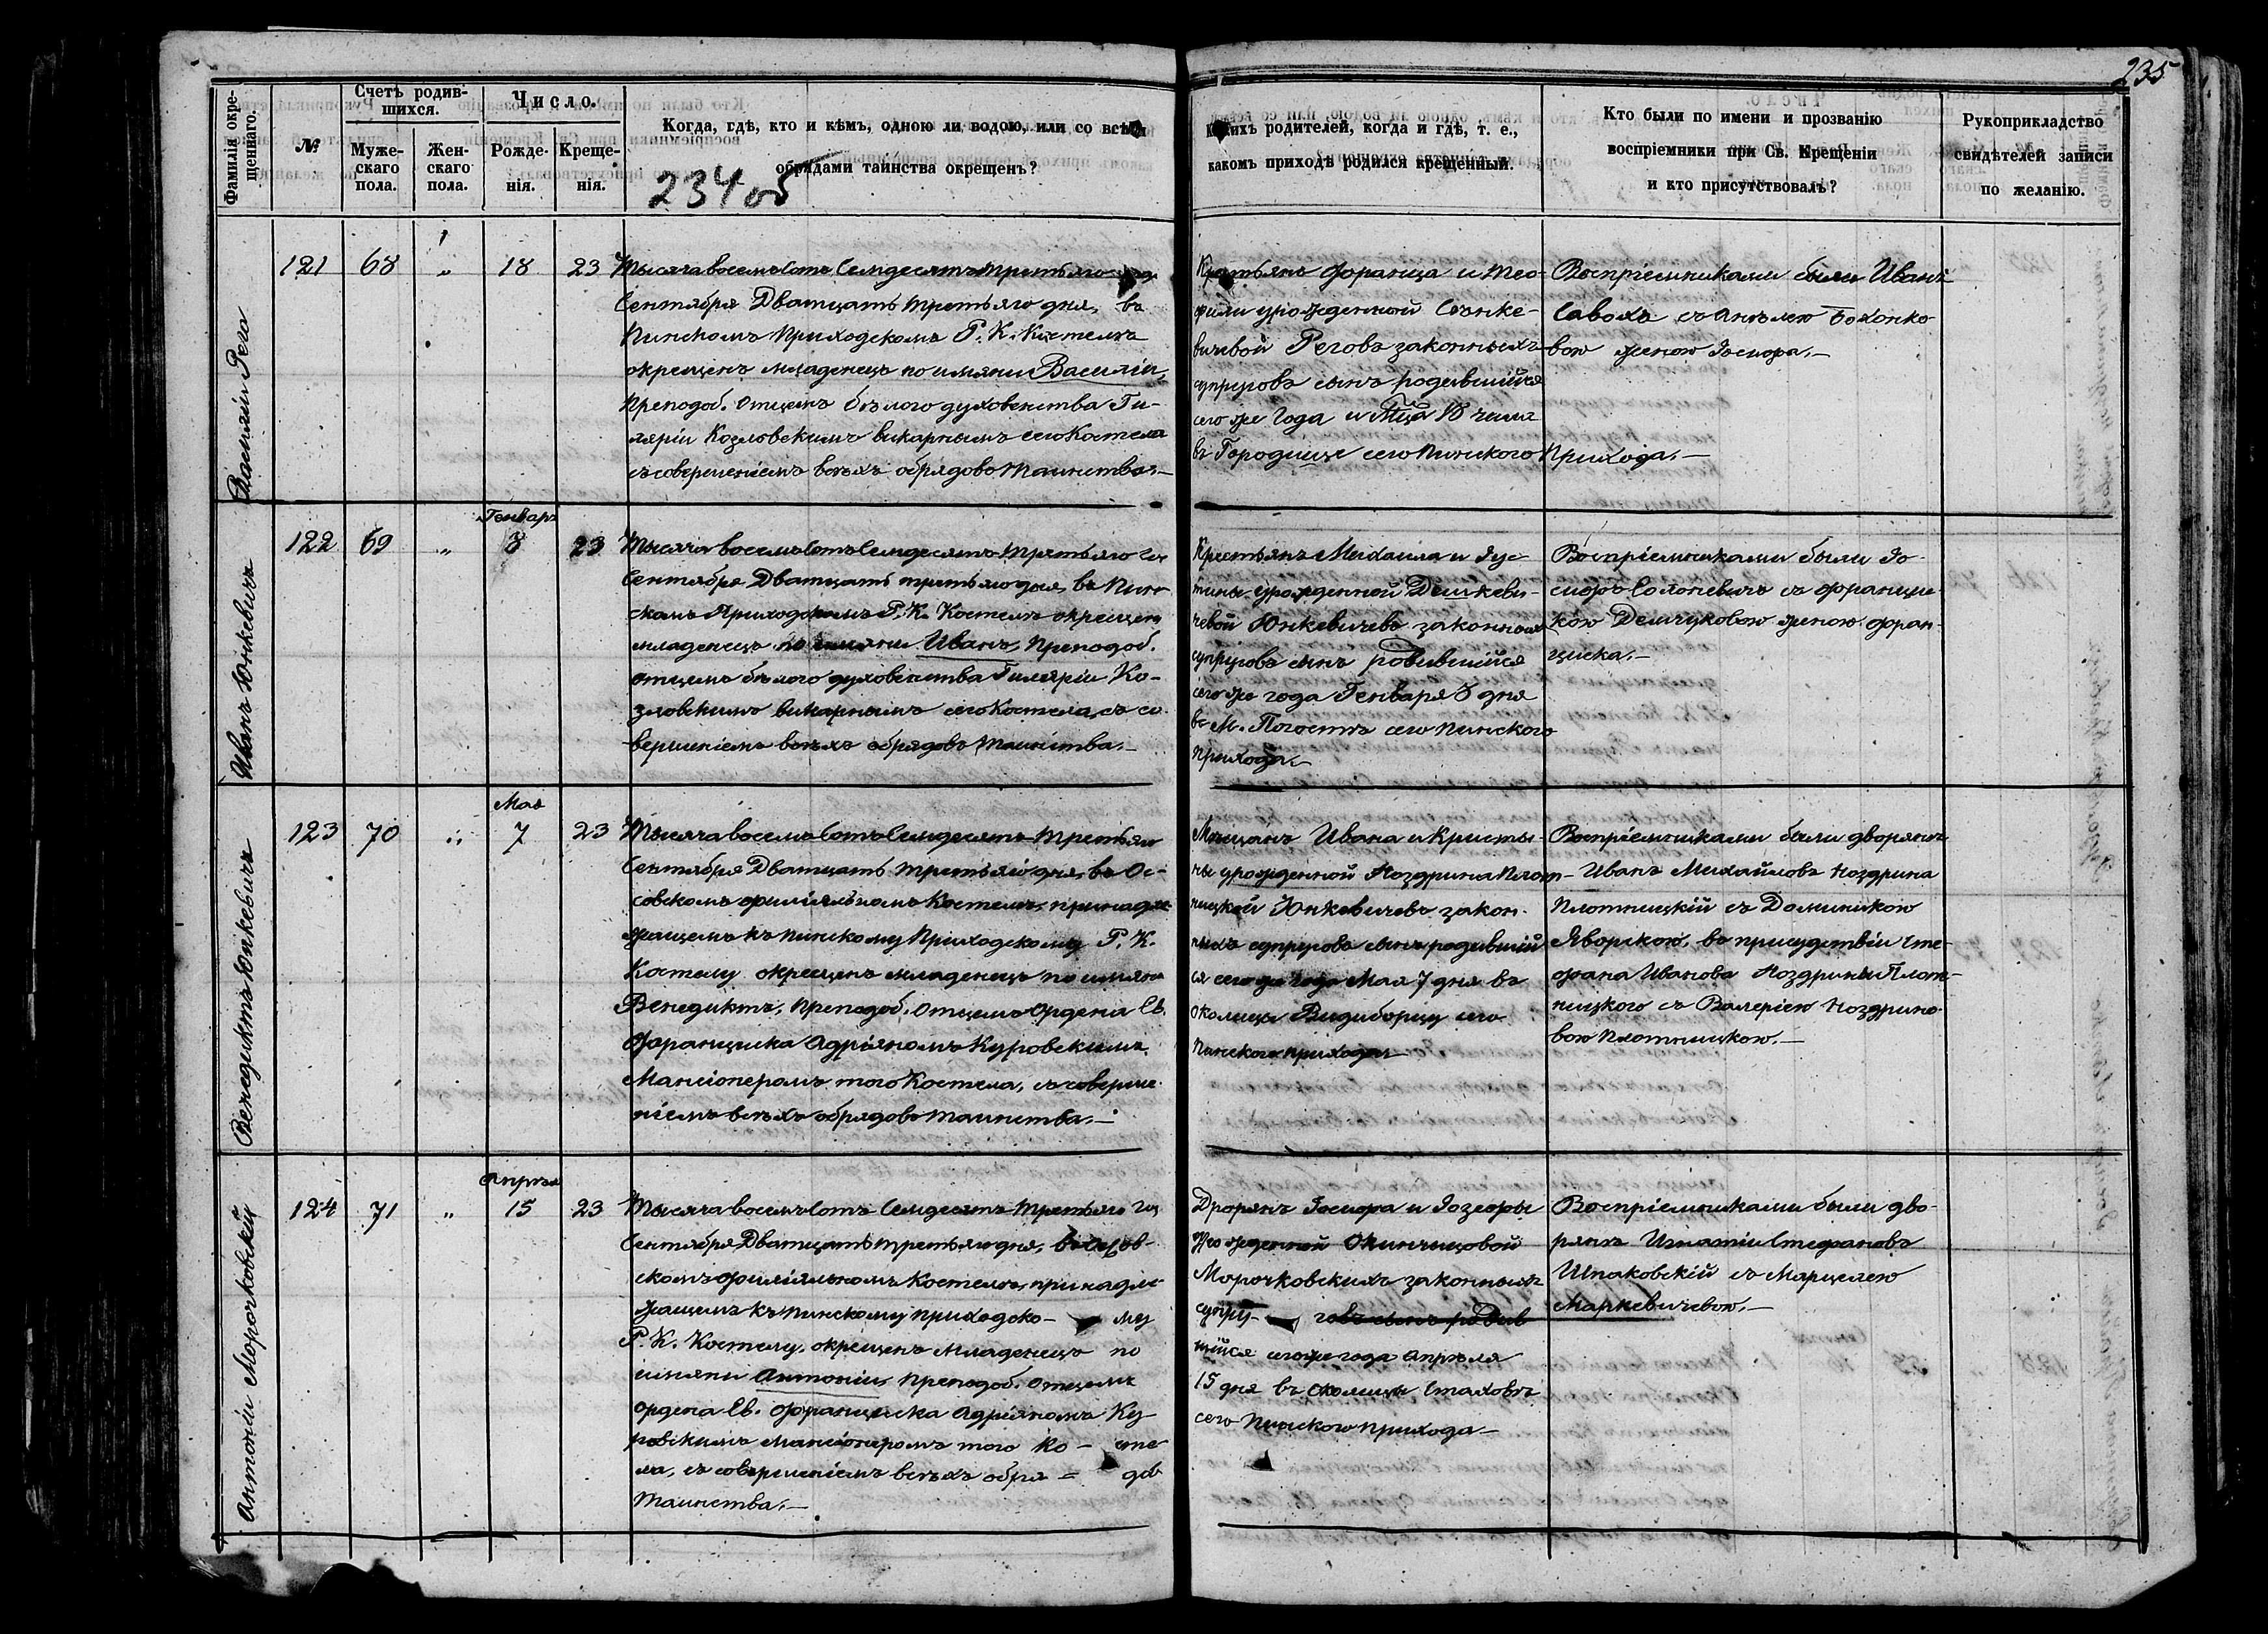 235
Фамилія окре-
щеннаго.
№
Счетъ родив-
шихся.
Муже-
скаго
пола.
Жен-
скаго
пола.
Число.
Рожде-
нія.
Креще-
нія.
Когда, гдѣ, кто и кѣмъ, одною ли водою, или со всѣми
обрядами таинства окрещенъ?
234 об
Какихъ родителей, когда и гдѣ, т. е.,
какомъ приходѣ родился крещенный.
Кто были по имени и прозванію
воспріемники при Св. Крещеніи
и кто присутствовалъ?
Рукоприкладство
свидѣтелей записи
по желанію.
Василій Рего
121 68 „ 18 23
Тысяча восемьсотъ Семдесятъ третьяго года
Сентября Дватцать третьяго дня, въ
Пинскомъ Приходскомъ Р. К. Костелѣ
окрещенъ младенецъ по имяни Василій,
Преподоб. Отцемъ бѣлого духовенства Ги-
ляріи Козловскимъ викарнымъ сего Костела
съ совершеніемъ всѣхъ обрядовъ Таинства.—
Крестьянъ Франца и Тео-
фили урожденной Сѣнке-
вичевой Реговъ законныхъ
супруговъ сынъ родившійся
сего же года и Мца 18 числа
въ Городище сего Пинского Прихода.—
Воспріемниками были Иванъ
Саволъ съ Анѣлею Бохонко-
вою женою Іосифа.—
Иванъ Юнкевичъ
122 69 „ Генваря 8 23
Тысяча восемьсотъ Семдесятъ третьяго год
Сентября Дватцать третьяго дня, въ Пин-
скомъ Приходскомъ Р. К. Костелѣ окрещенъ
младенецъ по имяни Иванъ, Преподоб.
отцемъ бѣлого духовенства Гиляріи Ко-
зловскимъ викарнымъ сего Костела, съ со-
вершеніемъ всѣхъ обрядовъ Таинства.—
Крестьянъ Михаила и Іус-
тины урожденной Демкеви-
чевой Юнкевичевъ законныхъ
супруговъ сынъ родившійся
сего же года Генваря 8 дня
въ М. Погостѣ сего Пинского
Прихода.—
Воспріемниками были Іо-
сифъ Солоневичъ съ Францис-
кою Демчуковою женою Фран-
циска.—
Венедиктъ Юнкевичъ
123 70 „ Мая 7 23
Тысяча восемьсотъ Семдесятъ третьяго
Сентября Дватцать третьяго дня, въ Ос-
совскомъ филіяльномъ Костелѣ, принадле-
жащемъ къ Пинскому Приходскому Р. К.
Костелу окрещенъ младенецъ по имяни
Венедиктъ, Преподоб. Отцемъ Ордена Св.
Франциска Адріяномъ Куровскимъ
Мансіонеромъ того Костела, съ соверше-
ніемъ всѣхъ обрядовъ Таинства.—
Мѣщанъ Ивана и Кристи-
ны урожденной Ноздрина Плот-
ницкой Юнкевичевъ закон-
ныхъ супруговъ сынъ родивший
ся сего же года Мая 7 дня въ
околицы Видиборцу сего
Пинского прихода.—
Воспріемниками были дворянъ
Иванъ Михайловъ Ноздрина
Плотницкій съ Доминикою
Яворскою, въ присудствіи Сте-
фана Иванова Ноздрины Плот-
ницкого съ Валеріею Ноздрино-
вою Плотницкою.—
Антоній Морочковскій
124 71 „ Апрѣля 15 23
Тысяча восемьсотъ Семдесятъ третьяго год
Сентября Дватцать третьяго дня, въ Оссов-
скомъ филіяльномъ Костелѣ, принадле-
жащемъ къ Пинскому Приходско- му
Р. К. Костелу, окрещенъ младенецъ по
имяни Антоній, Преподоб. Отцемъ
Ордена Св. Франциска Адріяномъ Ку-
ровскимъ Мансіонеромъ того Ко- сте-
ла, съ совершеніемъ всѣхъ обря= дов
Таинства.—
Дворянъ Іосифа и Іозефы
урожденной Окинчицовой
Морочковскихъ законныхъ
супру- говъ сынъ родив
шійся сегожегода Апрѣля
15 дня въ околицы Стаховѣ
сего Пинского прихода.—
Воспріемниками были дво-
рянъ Игнатій Стефановъ
Шпаковскій съ Марцелею
Маркевичевою.—